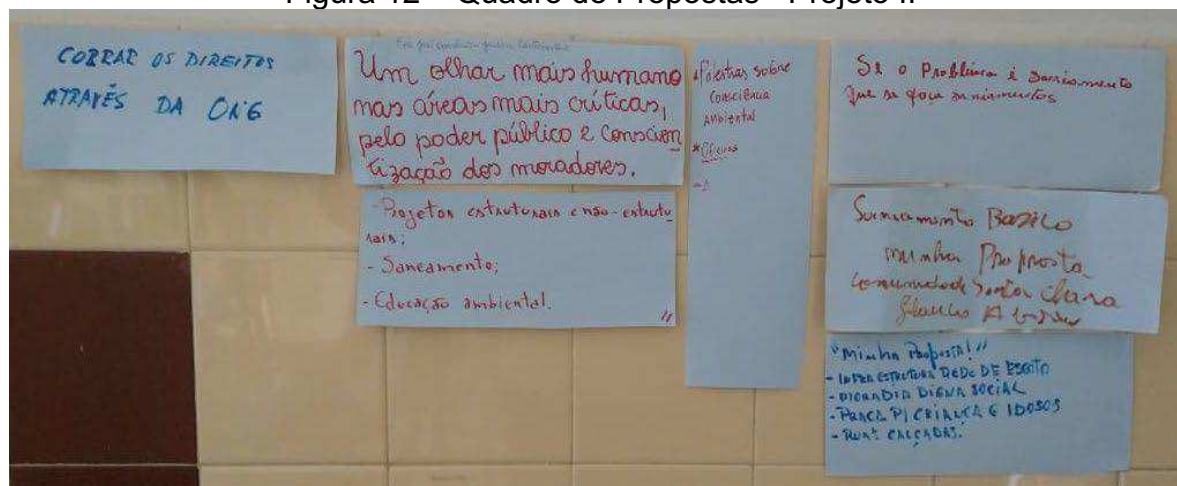 Figura 12 – Quadro de Propostas - Projeto II
COBRAR OS DIREITOS
ATRAVÉS DA ONG
Um olhar mais humano
nas áreas mais críticas,
pelo poder público e conscien
tização dos moradores.
- Projetos estruturais e não-estrutu
rais;
- Saneamento;
- Educação ambiental.
Palestras sobre
Consciência
Ambiental
* Oficinas
Se o Problema é Saneamento
que se faça saneamentos
Saneamento Basico
minha Proposta
comunidade Santa Clara
"Minha Proposta!"
- INFRA ESTRUTURA REDE DE ESGOTO
- MORADIA DIGNA SOCIAL
- PRAÇA P/ CRIANÇA E IDOSOS
- RUAS CALÇADAS.